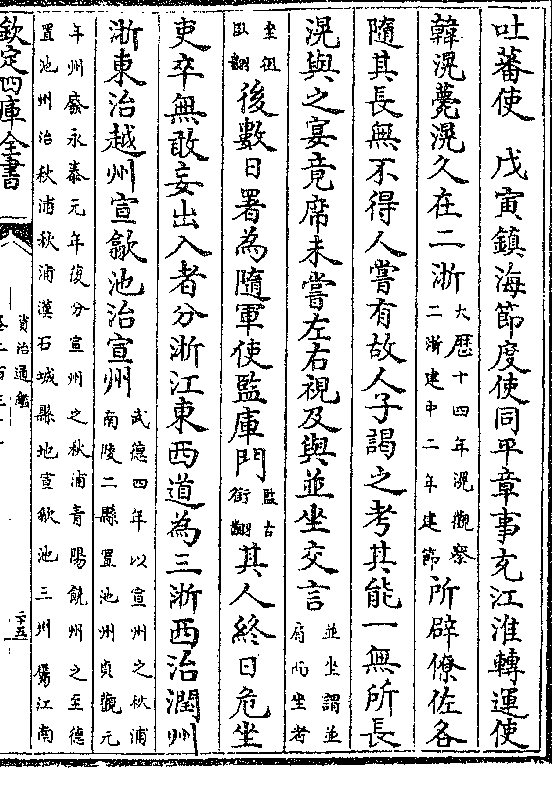 吐蕃使　戊寅鎮海節度使同平章事充江淮轉運使
韓滉薨滉久在二浙
大厯十四年滉觀察
二浙建中二年建節
所辟僚佐各
隨其長無不得人嘗有故人子謁之考其能一無所長
滉與之宴竟席未嘗左右視及與並坐交言
並坐謂並
肩而坐者
坐徂
臥翻
後數日署為隨軍使監庫門
監古
銜翻
其人終日危坐
吏卒無敢妄出入者分浙江東西道為三浙西治潤州
浙東治越州宣歙池治宣州
武德四年以宣州之秋浦
南陵二縣置池州貞觀元
年州廢永泰元年復分宣州之秋浦青陽饒州之至德
置池州治秋浦秋浦漢石城縣地宣歙池三州屬江南
欽定四庫全書
資治通鑑
二十五